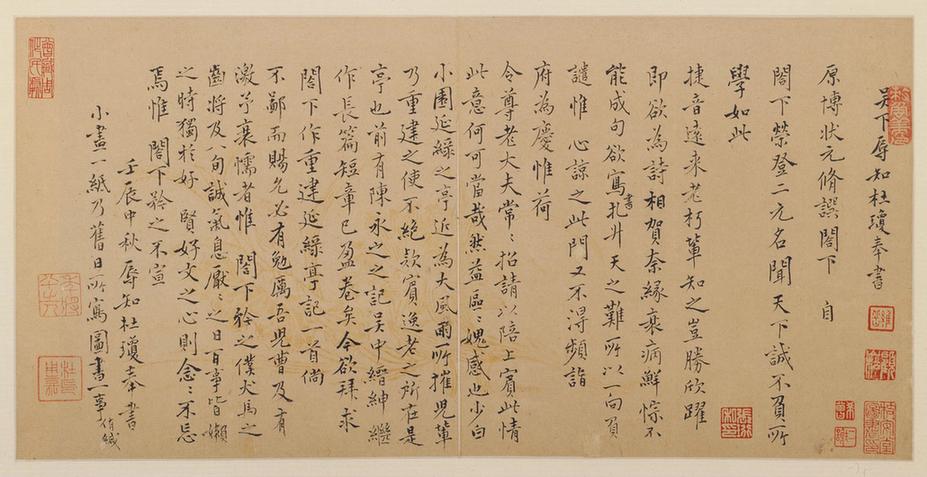 吴下辱知杜瓊奉書
原博狀元脩譔閣下　自
閣下榮登二元名聞天下誠不負〻所
學如此
捷音遠來老朽輩知之豈勝欣躍
即欲為詩相賀奈緣衰病鮮悰不
能成句欲寫書札升天之難所以一向負
譴惟　心諒之此門又不淂頻詣
府為慶惟荷
令尊老大夫常〻招請以陪上賓此情
此意何可當哉然益區〻媿感也少白
小園延綠之亭近為大風雨所摧児輩
乃重建之使不絕款賓逸老之所在是
亭也前有陳永之之記吴中縉紳繼
作長篇短章已盈卷矣今欲拜求
閣下作重建延綠亭記一首倘
不鄙而賜允必有勉厲吾児曹及有
激于衰懦者惟　閣下矜之僕犬馬之
齒將及八旬誠氣息厭〻之日百事皆嬾
之時獨於好　賢好文之心則念〻不忘
焉惟　閣下矜之不宣
壬辰中秋　辱知杜瓊奉書
小畫一紙乃舊日所寫圖書事